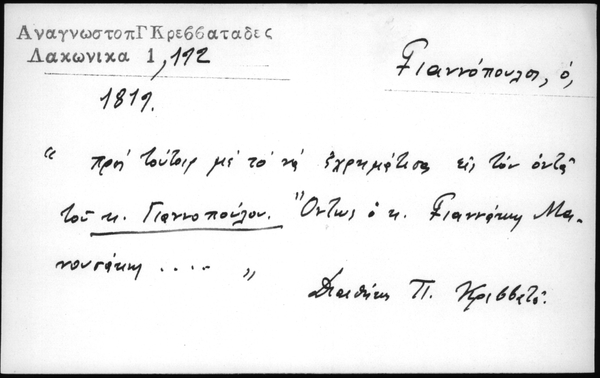 ΑναγνωστοπΓΚρεββαταδες
Λακωνικα 1,192
Γιαννόπουλος, ὁ,
1819.
" πρὸς τούτοις μὲ τὸ νὰ ἐχρημάτισα εἰς τὸν ὀντᾶ
τοῦ κ. Γιαννοπούλου. "Ὄντως ὁ κ. Γιαννάκης Μα-
νουσάκης .... "
Διαθήκη Π. Κρεββατᾶ.